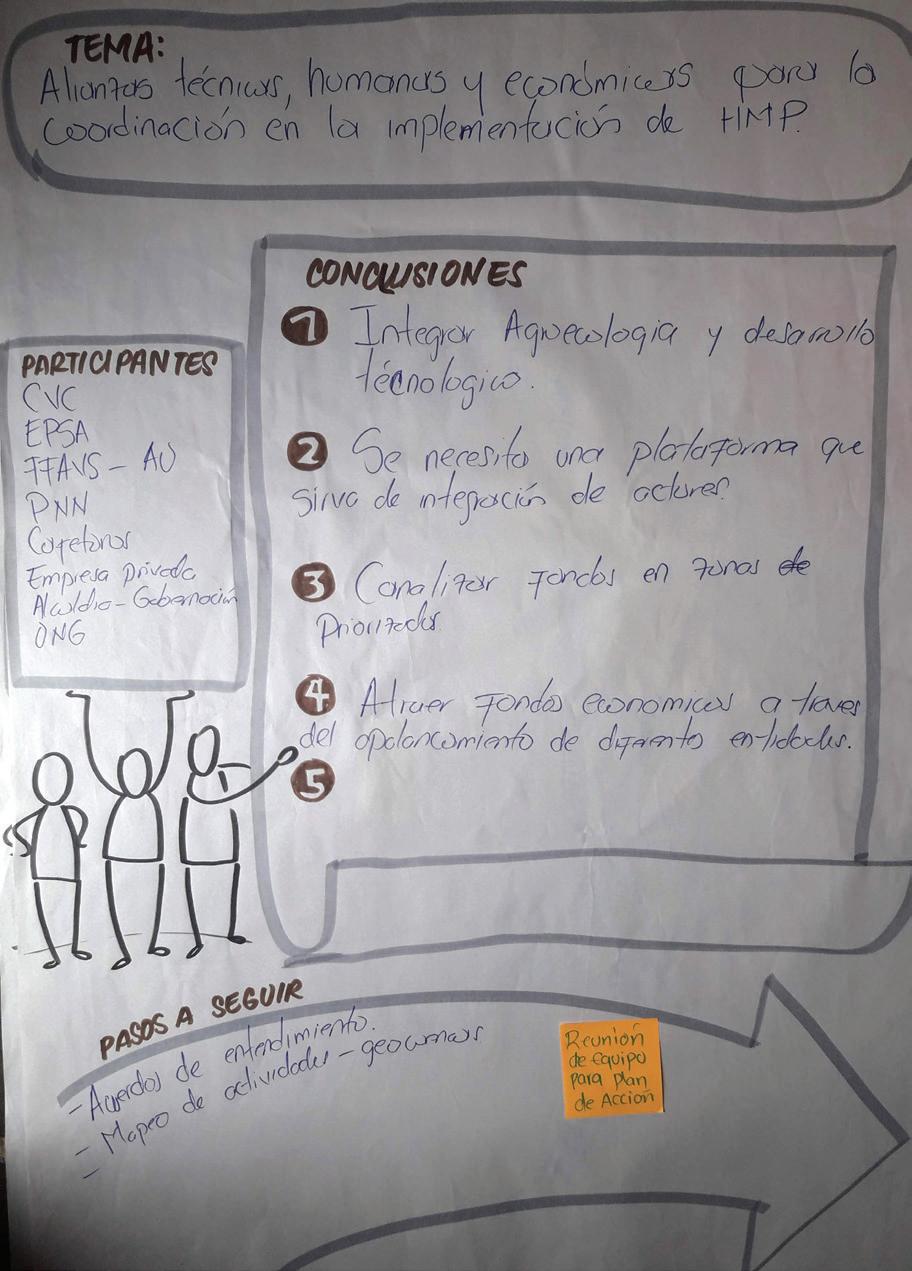 TEMA:
Alianzas técnicas, humanas y económicas para la
coordinación en la implementación de HMP.
CONCLUSIONES
1 Integrar Agroecologia y desarrollo
técnologico.
2 Se necesita una plataforma que
sirva de integración de actores.
3 Canalizar fondos en zonas de
Priorizadas
4 Atraer fondos economicos a traves
del apalancamiento de diferentes entidades.
5
PARTICIPANTES
CVC
EPSA
PNN
Cafeteros
Empresa Privada
Alcaldia - Gobernación
ONG
PASOS A SEGUIR
- Acuerdos de entendimiento.
- Mapeo de actividades -
-
Reunión
de Equipo
para plan
de Acción